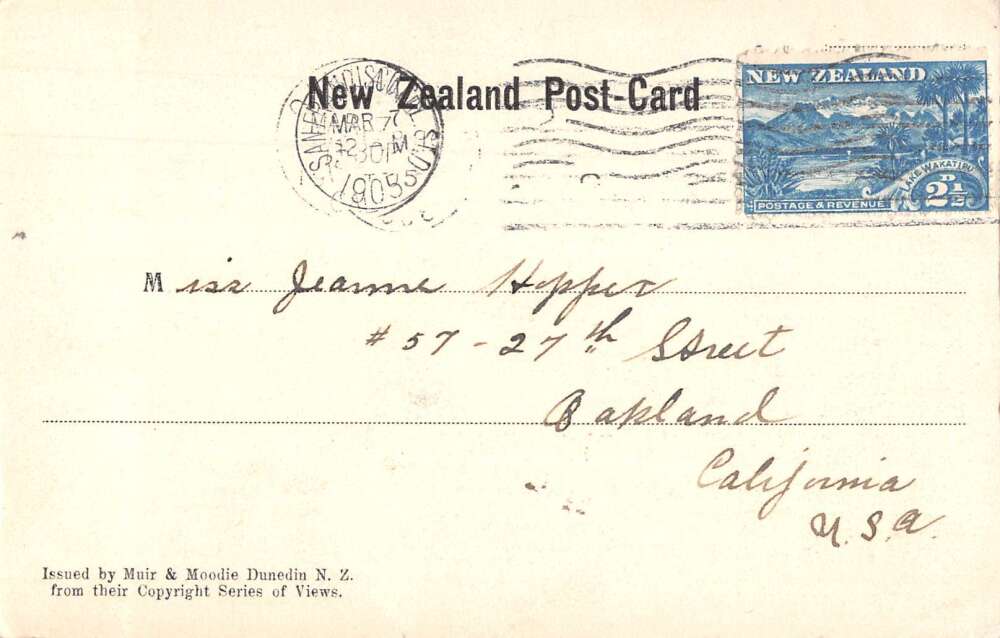 New Zealand Post-Card
MAR 7
1905
NEW ZEALAND
LAKE WAKATIPU
POSTAGE & REVENUE
2 D 1/2
Miss Jeanne Hopper
# 57 - 27th Street
Oakland
California
U.S.A.
Issued by Muir & Moodie Dunedin N. Z.
from their Copyright Series of Views.